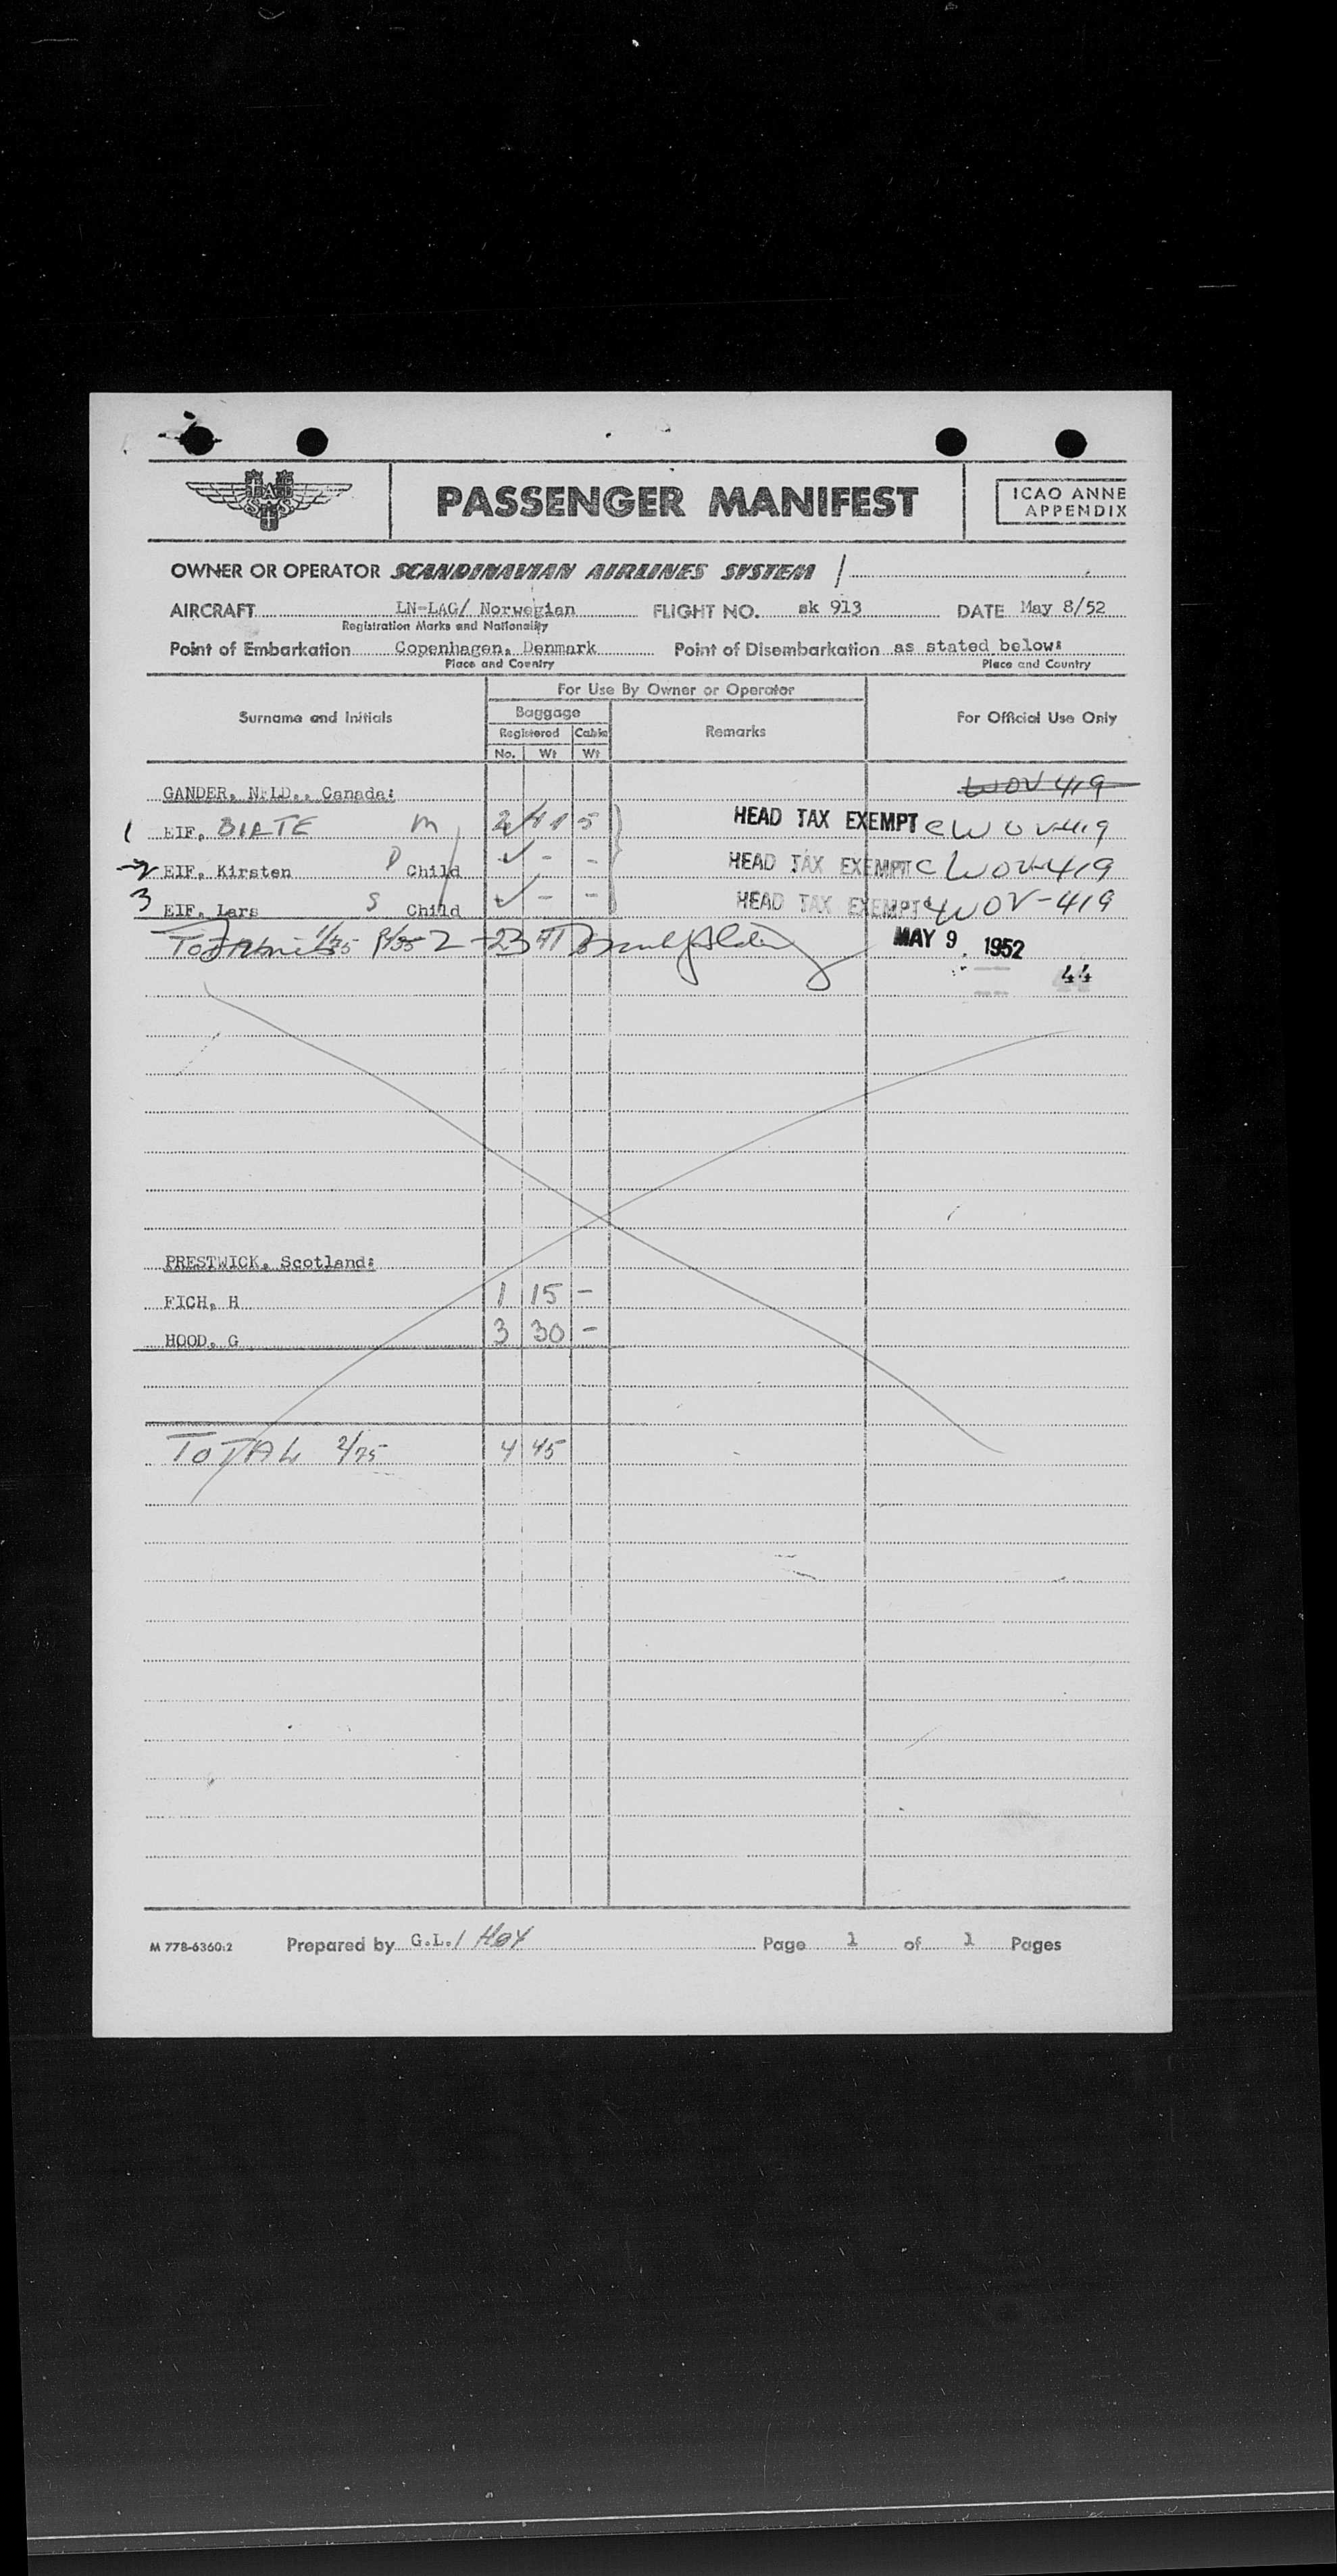 SAS
PASSENGER MANIFEST
ICAO ANNE
APPENDIX
OWNER OR OPERATOR SCANDINAVIAN AIRLINES SYSTEM /
AIRCRAFT LN-LAG/ Norwegian FLIGHT NO. sk 913 DATE May 8/52
Registration Marks and Nationality
Point of Embarkation Copenhagen, Denmark Point of Disembarkation as stated below:
Place and Country Place and Country
For Use By Owner or Operator
Surname and Initials Baggage Remarks For Official Use Only
Registered Cabin
No. Wt Wt
GANDER, NFLD., Canada: WOV 419
1 EIF, BIRTE M 2 41 5 HEAD TAX EXEMPT CWOV-419
2 EIF, Kirsten D Child - - HEAD TAX EXEMPT CWOV-419
3 EIF, Lars S Child - - HEAD TAX EXEMPT WOV-419
MAY 9 1952
44
PRESTWICK, Scotland:
FICH, H 1 15 -
HOOD, G 3 30 -
TOTAL 2/75 4 45
M 778-6360:2 Prepared by G.L./ Page 1 of 1 Pages